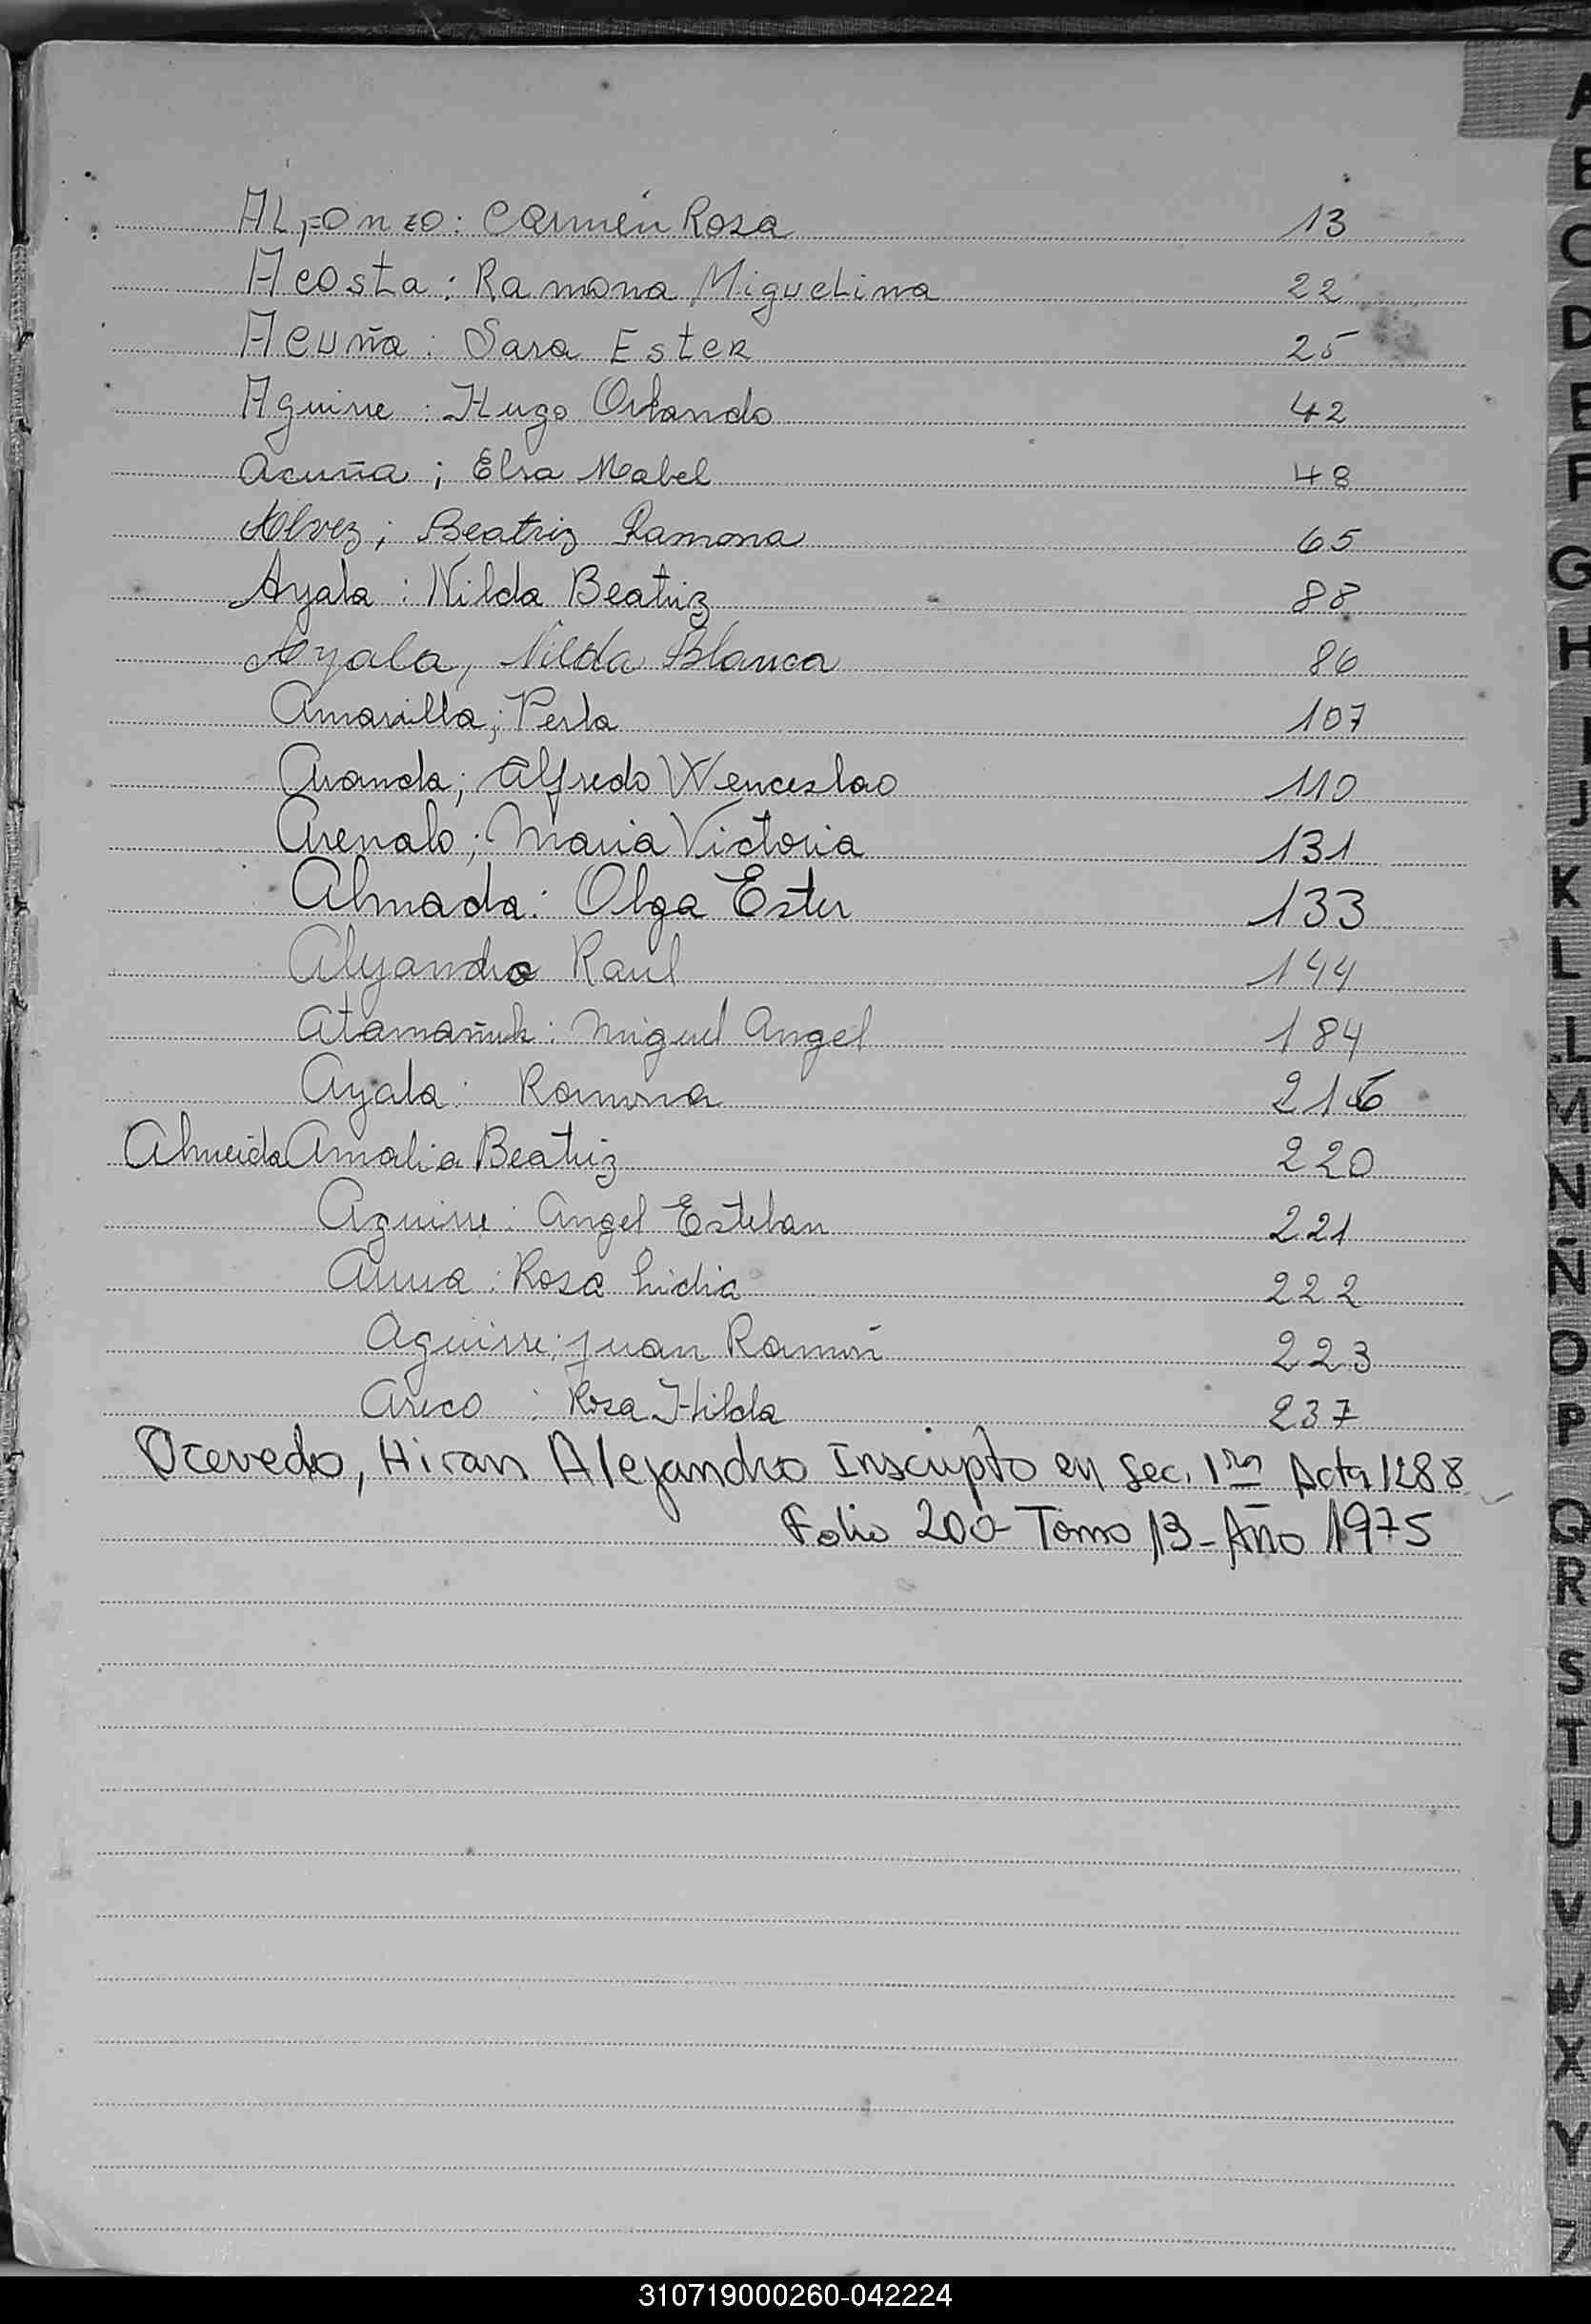 ALFONZO: CARmen Rosa 13
Acosta: Ramona Miguelina 22
Acuña: Sara Ester 25
Aguirre: Hugo Orlando 42
Acuña; Elsa Mabel 48
Alvez; Beatriz Ramona 65
Ayala: Nilda Beatriz 88
Ayala, Nilda Blanca 86
Amarilla; Perla 107
Aranda; Alfredo Wenceslao 110
Arevalo; Maria Victoria 131
Almada: Olga Ester 133
Alejandro Raul 144
Atamañuk: Miguel Angel 184
Ayala: Ramona 216
Almeida Amalia Beatriz 220
Aguirre: Angel Esteban 221
: Rosa Lidia 222
Aguirre: Juan Ramón 223
Areco : Rosa Hilda 237
Acevedo, Hiran Alejandro Inscripto en Sec. 1ra Acta 1288
Folio 200- Tomo 13- Año 1975
A
B
C
D
E
F
G
H
I
J
K
L
LL
M
N
Ñ
O
P
Q
R
S
T
U
V
W
X
Y
Z
310719000260-042224